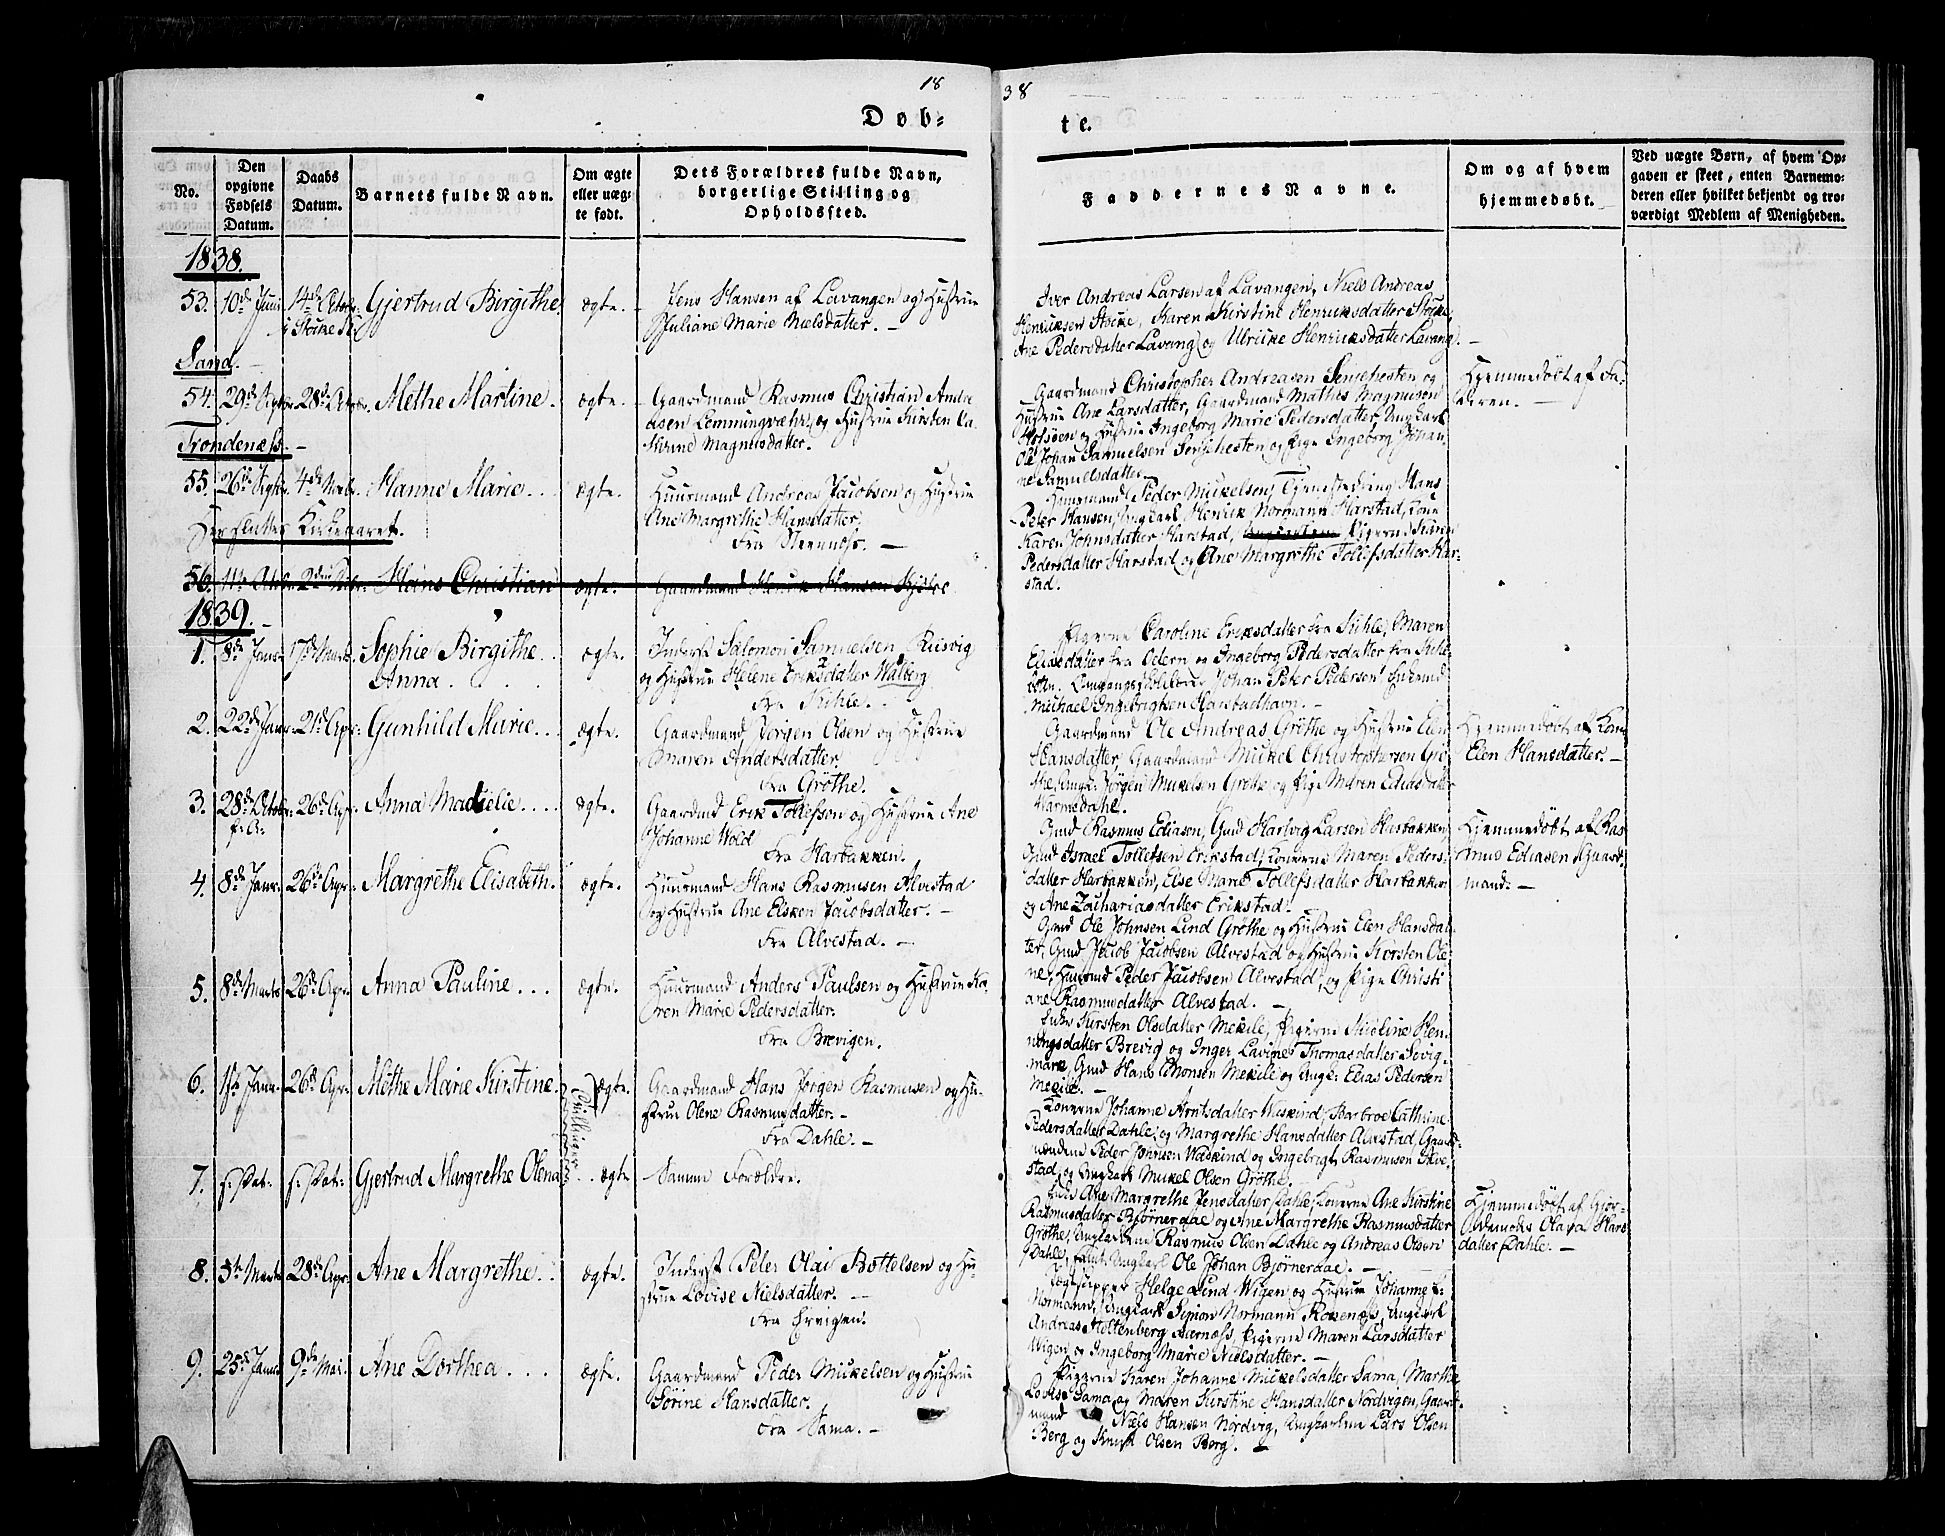 18
38
Døb-
te.
No.
Den opgivne Fødsels Datum.
Daabs Datum.
Barnets fulde Navn.
Om ægte eller uægte født.
Dets Forældres fulde Navn,
borgerlige Stilling og
Opholdssted.
Faddernes Navne.
Om og af hvem
hjemmedøbt.
Ved uægte Børn, af hvem Op-
gaven er skeet, enten Barnemo-
deren eller hvilket bekjendt og tro-
værdigt Medlem af Menigheden.
1838.
53. 10de Juni 14de Octbr: Gjertrud Birgithe ægte. Jens Hansen af Lavangen og Hustrue
Juliane Marie Nielsdatter. —
Iver Andreas Larsen af Lavangen, Niels Andreas
Henriksen Stocke, Karen Kirstine Henriksdatter Stocke,
Ane Pedersdatter Lavang og Ulricke Henriksdatter Lavang. —
Sand.
54. 29de Septbr. 28de Octobr. Methe Martine. ægte. Gaardmand Rasmus Christian Andre
asen Lemmingvæhr, og Hustrue Kirsten Ca-
thrine Magnusdatter.
Gaardmand Christopher Andreasen Senjehesten og
Hustrue Ane Larsdatter, Gaardmand Mathis Magnusen
og Hustrue Ingeborg Marie Pedersdatter, Ungkarl
Ole Johan Samuelsen Senjehesten og Pige Ingeborg Johan-
ne Samuelsdatter
Hjemmedøbt af Fa-
deren. —
Trondenæss. —
55. 26de Septbr. 4de Novbr. Hanne Marie... ægte. Huusmand Andreas Jacobsen og Hustrue
Ane Margrethe Hansdatter.
Huusmand Peder Mickelsen, Tjenestedreng Hans
Peter Hansen, Ungkarl Henrik Normann Harstad, Kone
Karen Johnsdatter Harstad, Pigerne Karen
Pedersdatter Harstad og Ane Margrethe Tollefsdatter Har-
stad.
Her slutter Kirkeaaret.
56. Hans Christian ægte. Gaardmand Henrik Hansen
1839.
1. 8de Janr. 17de Marts. Sophie Birgithe ægte. Inderst Salomon Samuelsen Kusvig
Anna. og Hustrue Helene Eriksdatter Walberg
Pigerne Caroline Eriksdatter fra Kihle, Maren
Eliasdatter fra Odern og Ingeborg Pedersdatter fra Kihle
Johan Peter Pedersen
Michael Ingebrigtsen Harstadhavn. —
Fra Kihle.
2. 22de Janr. 21de Apr: Gunhild Marie... ægte. Gaardmand Jørgen Olsen og Hustrue
Maren Andersdatter
Fra Grøthe.
Gaardmand Ole Andreas Grøthe og Hustrue Elen
Hansdatter, Gaardmand Mickel Christophersen Grø-
the, Ungk: Jørgen Mickelsen Grøthe og Pige Maren Eliasdatter
Harmedahl.
Hjemmedøbt af Kone
Elen Hansdatter. —
3. 28de Octobr: 26de Apr. Anna Maselie... ægte. Gaardmd Erik Tollefsen og Hustrue Ane
f. A. Johanne Wold
Fra Harbakken.
Gmd Rasmus Ediasen, Gmd Hartvig Larsen Harbakken,
Gmd Israel Tollefsen Erikstad, Konerne Maren Peders-
datter Harbakken, Else Marie Tollefsdatter Harbakken
og Ane Zachariasdatter Erikstad.
Hjemmedøbt af Ras-
mus Ediasen Gaard-
mand. —
4. 8de Janr. 26de Apr: Margrethe Elisabeth. ægte. Huusmand Hans Rasmusen Alvestad
og Hustrue Ane Elsken Jacobsdatter. —
Fra Alvestad. —
Gmd Ole Johnsen Lind Grøthe og Hustrue Elen Hansdat-
ter, Gmd Jacob Jacobsen Alvestad og Hustrue Kirsten Ole
ne, Huusmd Peder Jacobsen Alvestad, og Pige Christi
ane Rasmusdatter Alvestad. —
5. 8de Marts 26de Apr: Anna Pauline... ægte. Huusmand Anders Paulsen og Hustrue Ka-
ren Marie Pedersdatter.
Fra Brevigen.
Enke Kirsten Olsdatter Mekile, Pigerne Nicoline Hen-
ningsdatter Brevig og Inger Lavine Thomasdatter Sevig,
Gmd Hans Monsen Mekile og Ungk: Elias Pedersen
Mekile. —
6. 1ste Janr. 26de Apr: Methe Marie Kirstine ægte. Gaardmand Hans Jørgen Rasmusen og Hu-
strue Olene Rasmusdatter. —
Fra Dahle. —
Tvillinger
Konerne Johanne Arntsdatter Waskind, Barbroe Cathrine
Pedersdatter Dahle, og Margrethe Hansdatter Aunstad, Gaard-
mændene Peder Johnsen Waskind og Ingebrigt Rasmusen Alve-
stad, og Ungkarl Mickel Olsen Grøthe. —
7. f. Dat: f. Dat: Gjertrud Margrethe Olena... ægte Samme Forældre.
Enke Ane Margrethe Jensdatter Dahle, Konerne Ane Kirstine
Rasmusdatter Bjørnerdae og Ane Margrethe Rasmusdatter
Grøthe, Ungkarlene Rasmus Olsen Dahle og Andreas Olsen
Dahle, samt Ungkarl Ole Johan Bjørnerdae. —
Hjemmedøbt af Gjor-
demoder Olava Hans
datter Dahle. —
8. 5te Marts 28de Apr: Ane Margrethe... ægte. Inderst Peter Olai Bottelsen og Hu-
strue Lovise Nielsdatter. —
Fra Ervigen.
Helge Lund Wigen og Hustrue Johanne f:
Normann, Ungkarl Simon Normann Rokenæss, Ungkarl
Andreas Holtenberg Aarnæss, Pigerne Maren Larsdatter
Wigen og Ingeborg Marie Nielsdatter. —
9. 25de Janr. 9de Mai. Ane Dorthea... ægte. Gaardmand Peder Mickelsen og Hustrue
Sørine Hansdatter.
Fra Sama. —
Pigerne Karen Johanne Mickelsdatter Sama, Marthe
Lovise Sama og Maren Kirstine Hansdatter Nordvigen, Gaard-
mand Niels Hansen Nordvig, Ungkarlene Lars Olsen
Berg og Knud Olsen Berg. —